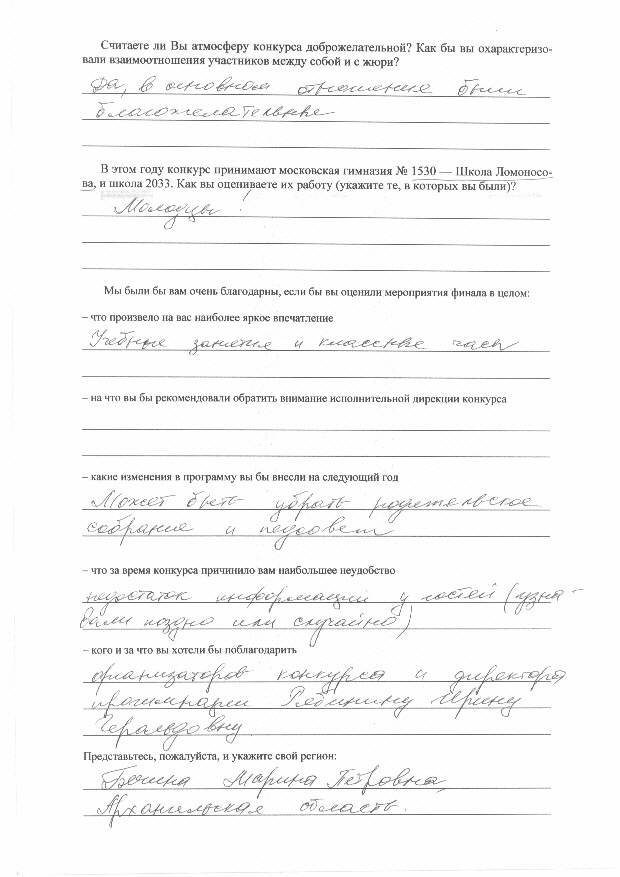 Считаете ли Вы атмосферу конкурса доброжелательной? Как бы вы охарактеризо-
вали взаимоотношения участников между собой и с жюри?
Да, в основном отношение были
благожелательные
В этом году конкурс принимают московская гимназия № 1530 — Школа Ломоносо-
ва, и школа 2033. Как вы оцениваете их работу (укажите те, в которых вы были)?
Молодцы!
Мы были бы вам очень благодарны, если бы вы оценили мероприятия финала в целом:
– что произвело на вас наиболее яркое впечатление
Учебные занятия и классные часы
– на что вы бы рекомендовали обратить внимание исполнительной дирекции конкурса
– какие изменения в программу вы бы внесли на следующий год
Может быть убрать родительское
собрание и педсовет
– что за время конкурса причинило вам наибольшее неудобство
недостаток информации у гостей (узна-
вали поздно или случайно)
– кого и за что вы хотели бы поблагодарить
организаторов конкурса и директора
прогимназии Рябинину Ирину
Геральдовну
Представьтесь, пожалуйста, и укажите свой регион:
Марина Петровна,
Архангельская область.